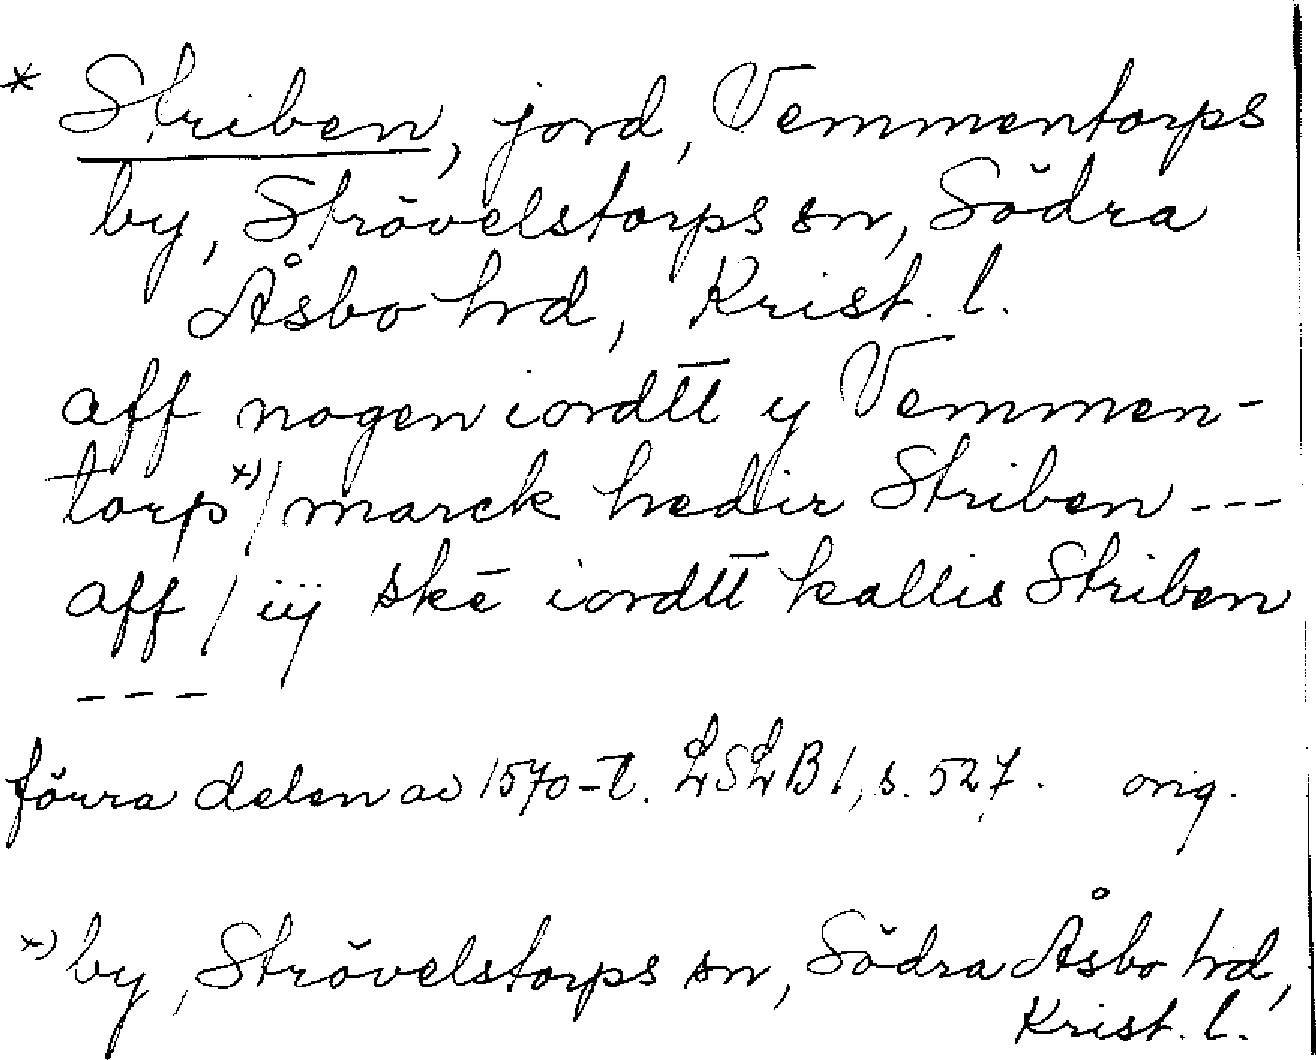 * Striben, jord, Vemmentorps
by, Strövelstorps sn, Södra
Åsbo hd, Krist. l.
aff nogen iordtt̅ y Vemmen-
torp *) / marck hedir Striben ---
aff / iij skē iordtt̅ kallis Striben
---
förra delen av 1570-t. LSLB 1, s. 527. orig.
*) by, Strövelstorps sn, Södra Åsbo hd,
Krist. l.